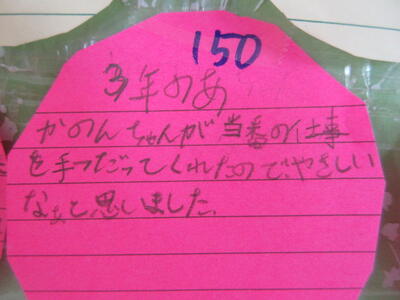 150
3年のあ
かのんちゃんが当番の仕事
を手つだってくれたので、やさしい
なぁと思しました。